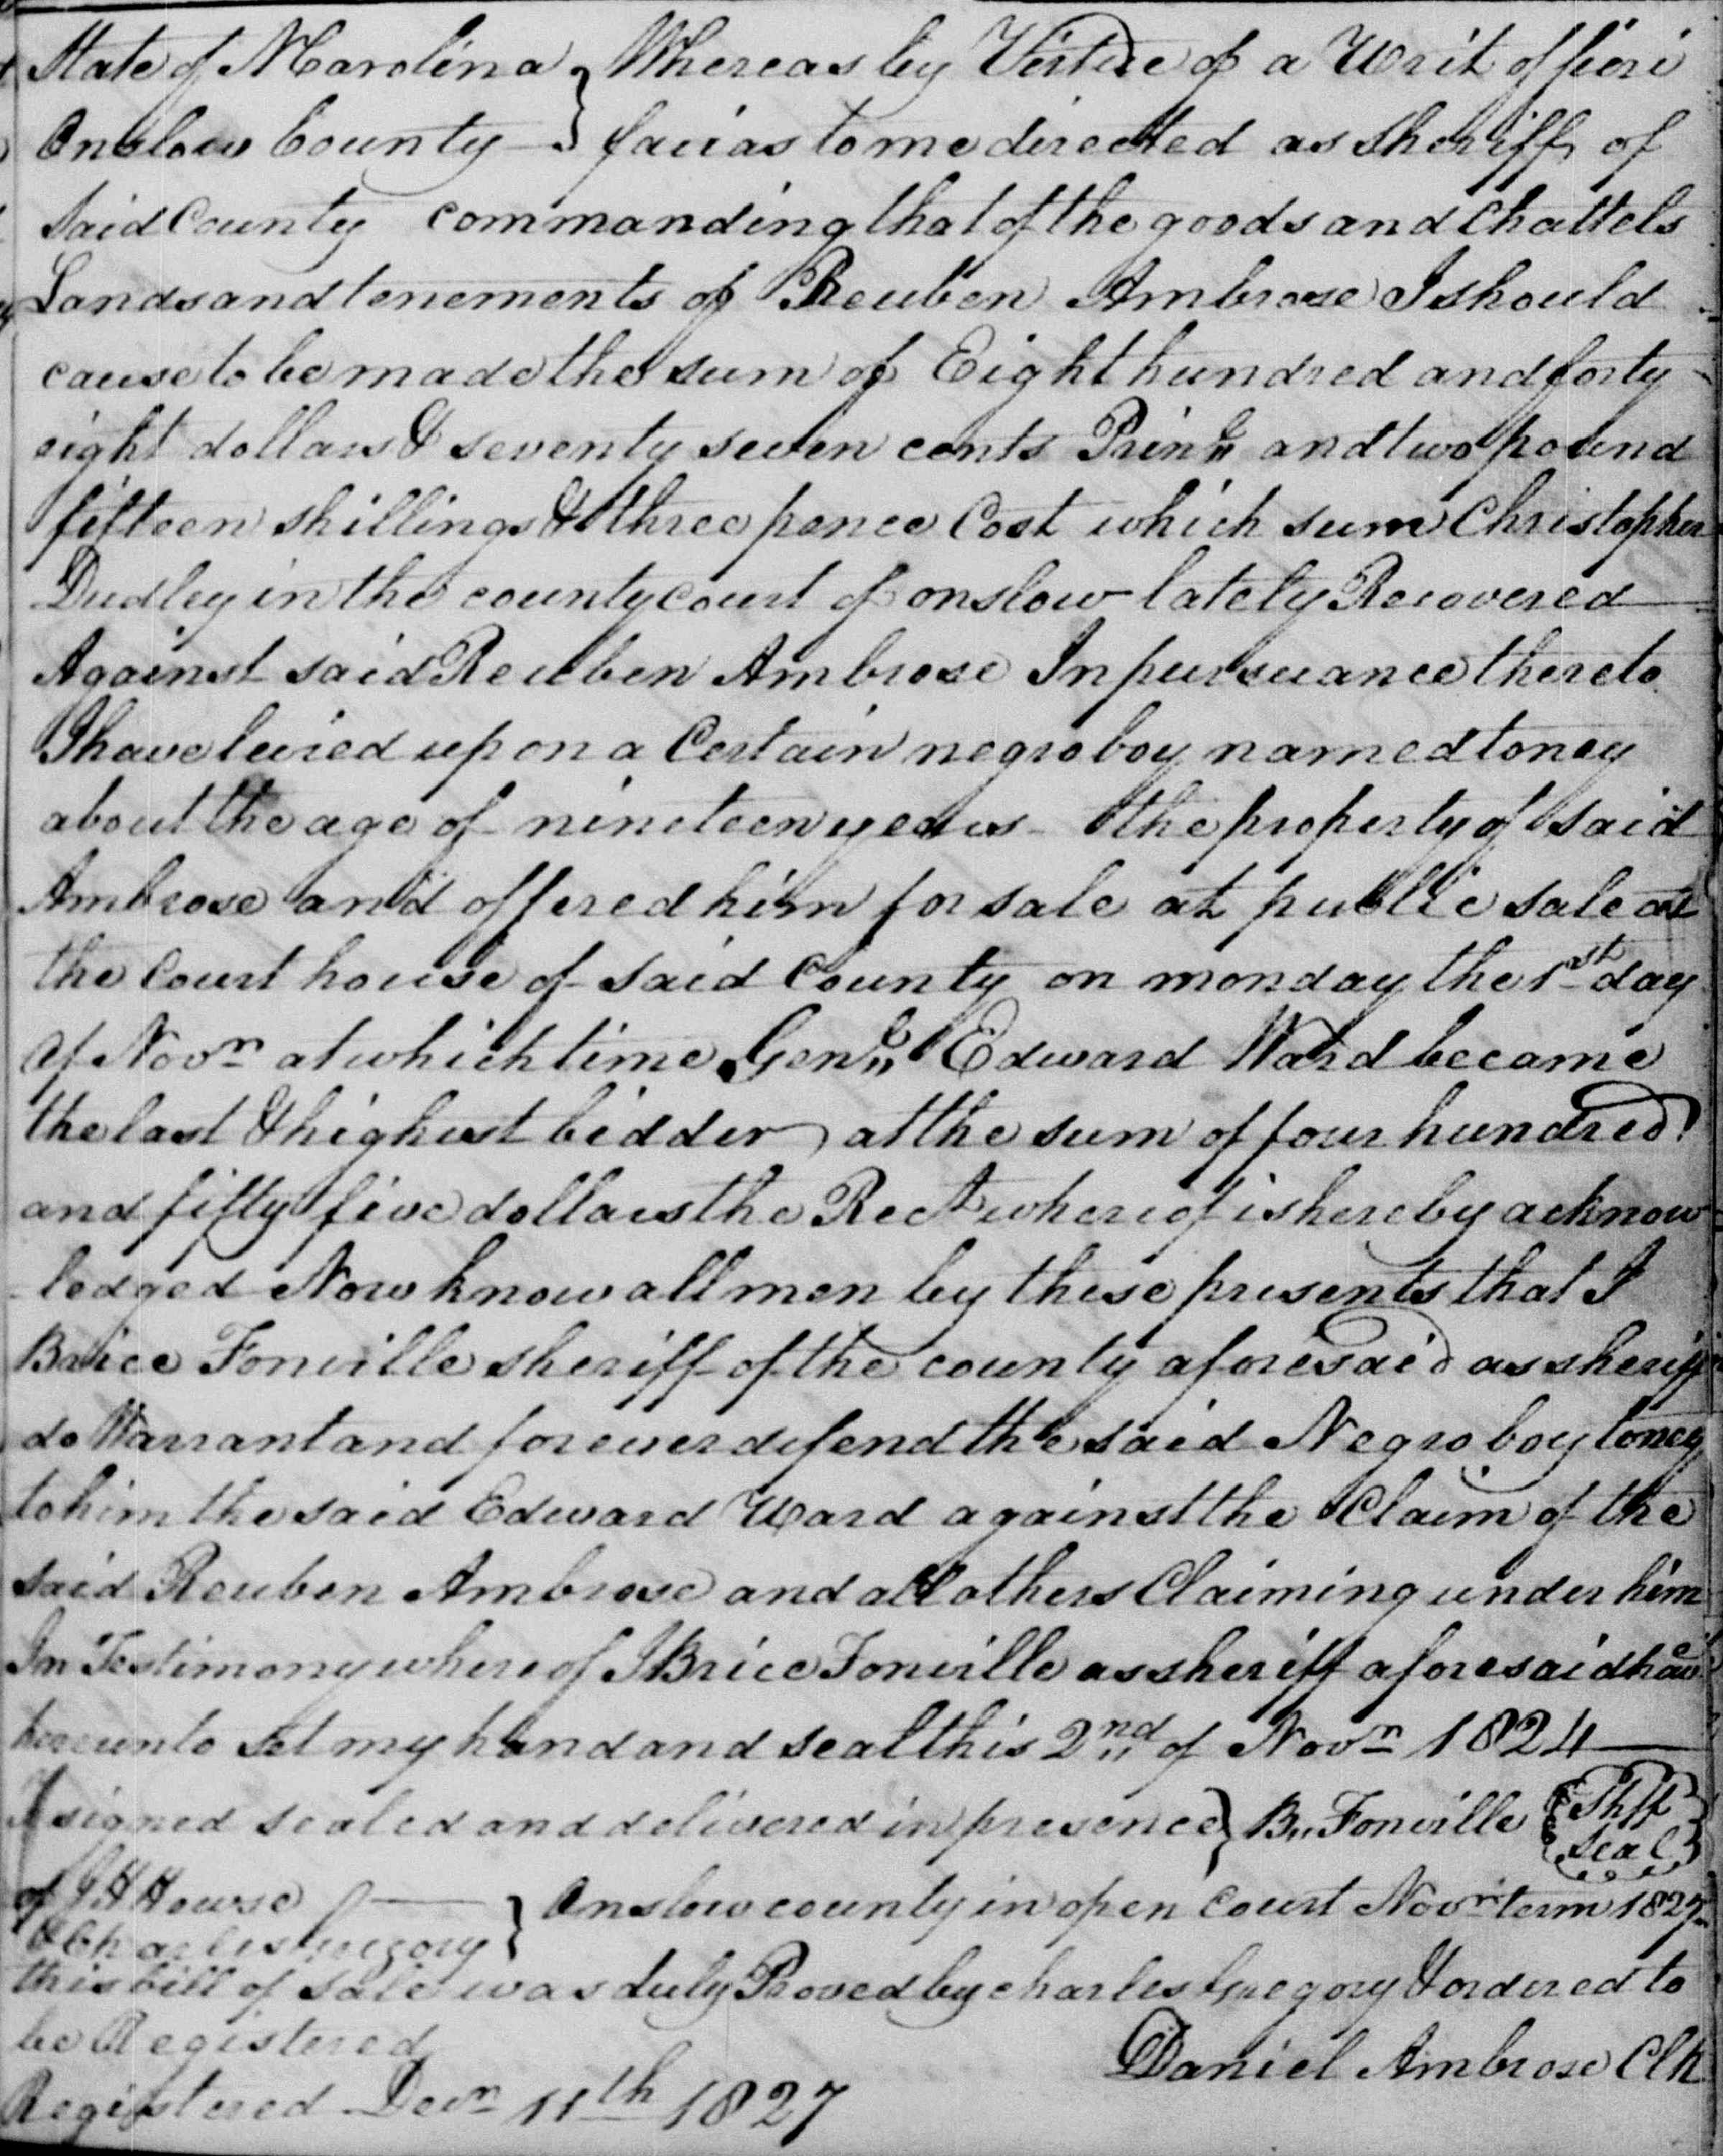 State of NCarolina } Whereas by Vertue of a Writ of fieri
Onslow County } facias to me directed as sheriff of
said County commanding that of the goods and Chattels
Lands and tenements of Reuben Ambrose I should
cause to be made the sum of Eight hundred and forty
eight dollars & seventy seven cents Prinl and two pound
fifteen shillings & three pence Cost which sum Christopher
Dudley in the county court of onslow lately Recovered
Against said Reuben Ambrose In pursuance thereto
I have levied upon a Certain negro boy named toney
about the age of nineteen years the property of said
Ambrose and offered him for sale at public sale at
the Court house of said County on monday the 1st day
of Novr at which time Genl Edward Ward became
the last & highest bidder at the sum of four hundred
and fifty five dollars the Rect whereof is hereby acknow
-ledged Now know all men by these presents that I
Brice Fonville sheriff of the county aforesaid as sheriff
do Warrant and forever defend the said Negro boy toney
to him the said Edward Ward against the Claim of the
said Reuben Ambrose and all others Claiming under him
In Testimony whereof I Brice Fonville as sheriff aforesaid have
hereunto set my hand and seal this 2nd of Novr 1824
signed sealed and delivered in presence } B,, Fonville Shff Seal
of House } Onslow county in open Court Novr term 1827
& Charles Gregory
this bill of sale was duly Proved by charles Gregory & ordered to
be Registered
Daniel Ambrose Clk
Registered Decr 11th 1827